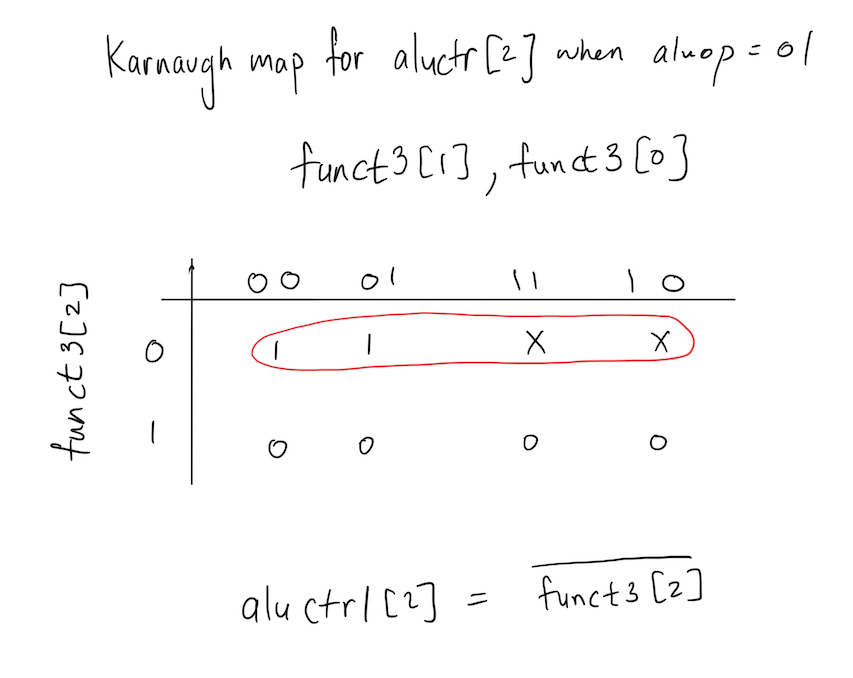 Karnaugh map for aluctr[2] when aluop = 01
funct3[1], funct3[0]
00 01 11 10
funct3[2]
0 1 1 X X
1 0 0 0 0
aluctrl[2] = funct3[2]